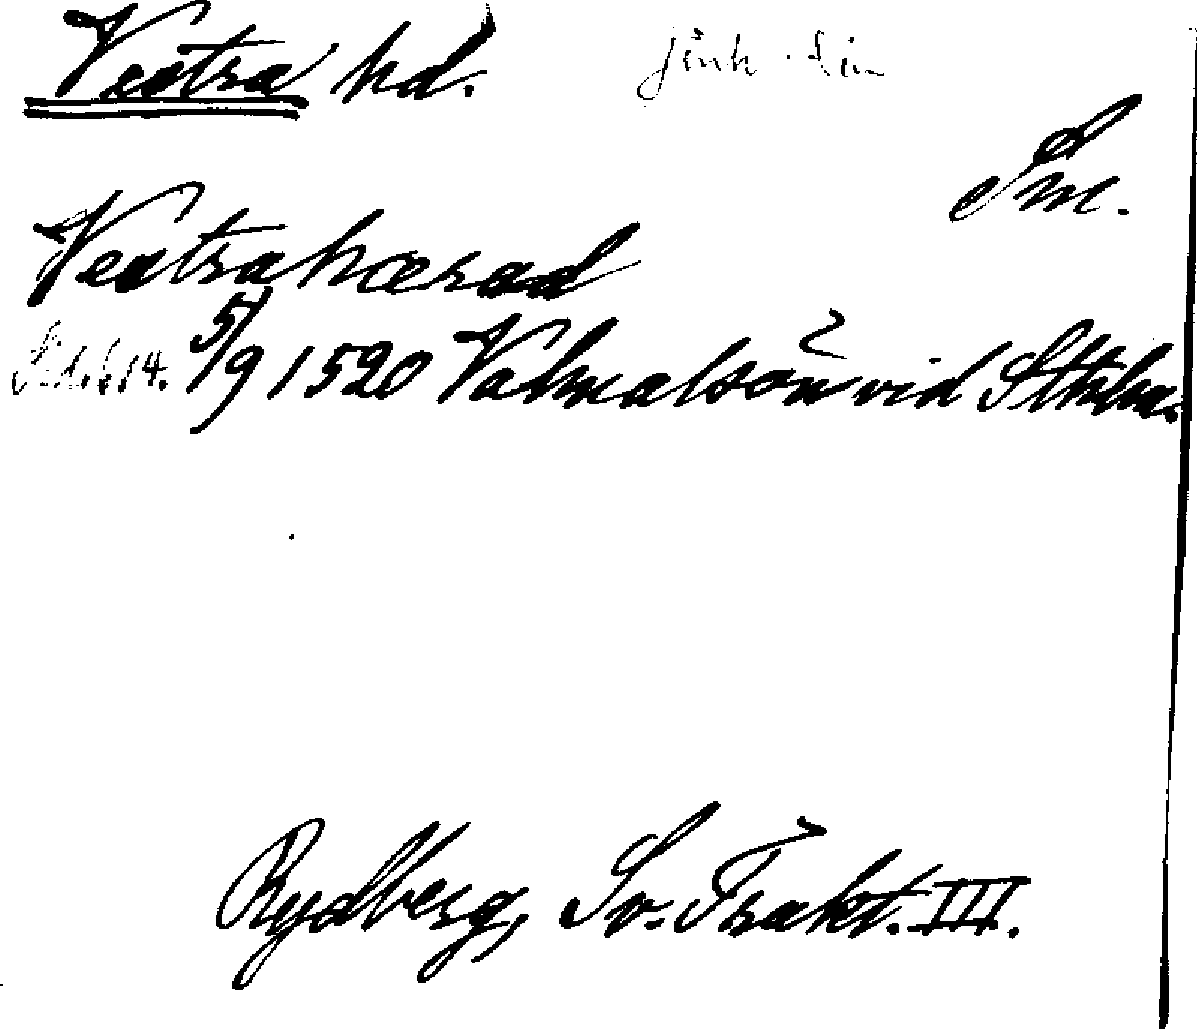 Västra hd. Jönk. län
Sm.
Vestrahærad
5/9 1520 Valmalsön vid Sthlm.
Rydberg, Sv. Trakt. III.